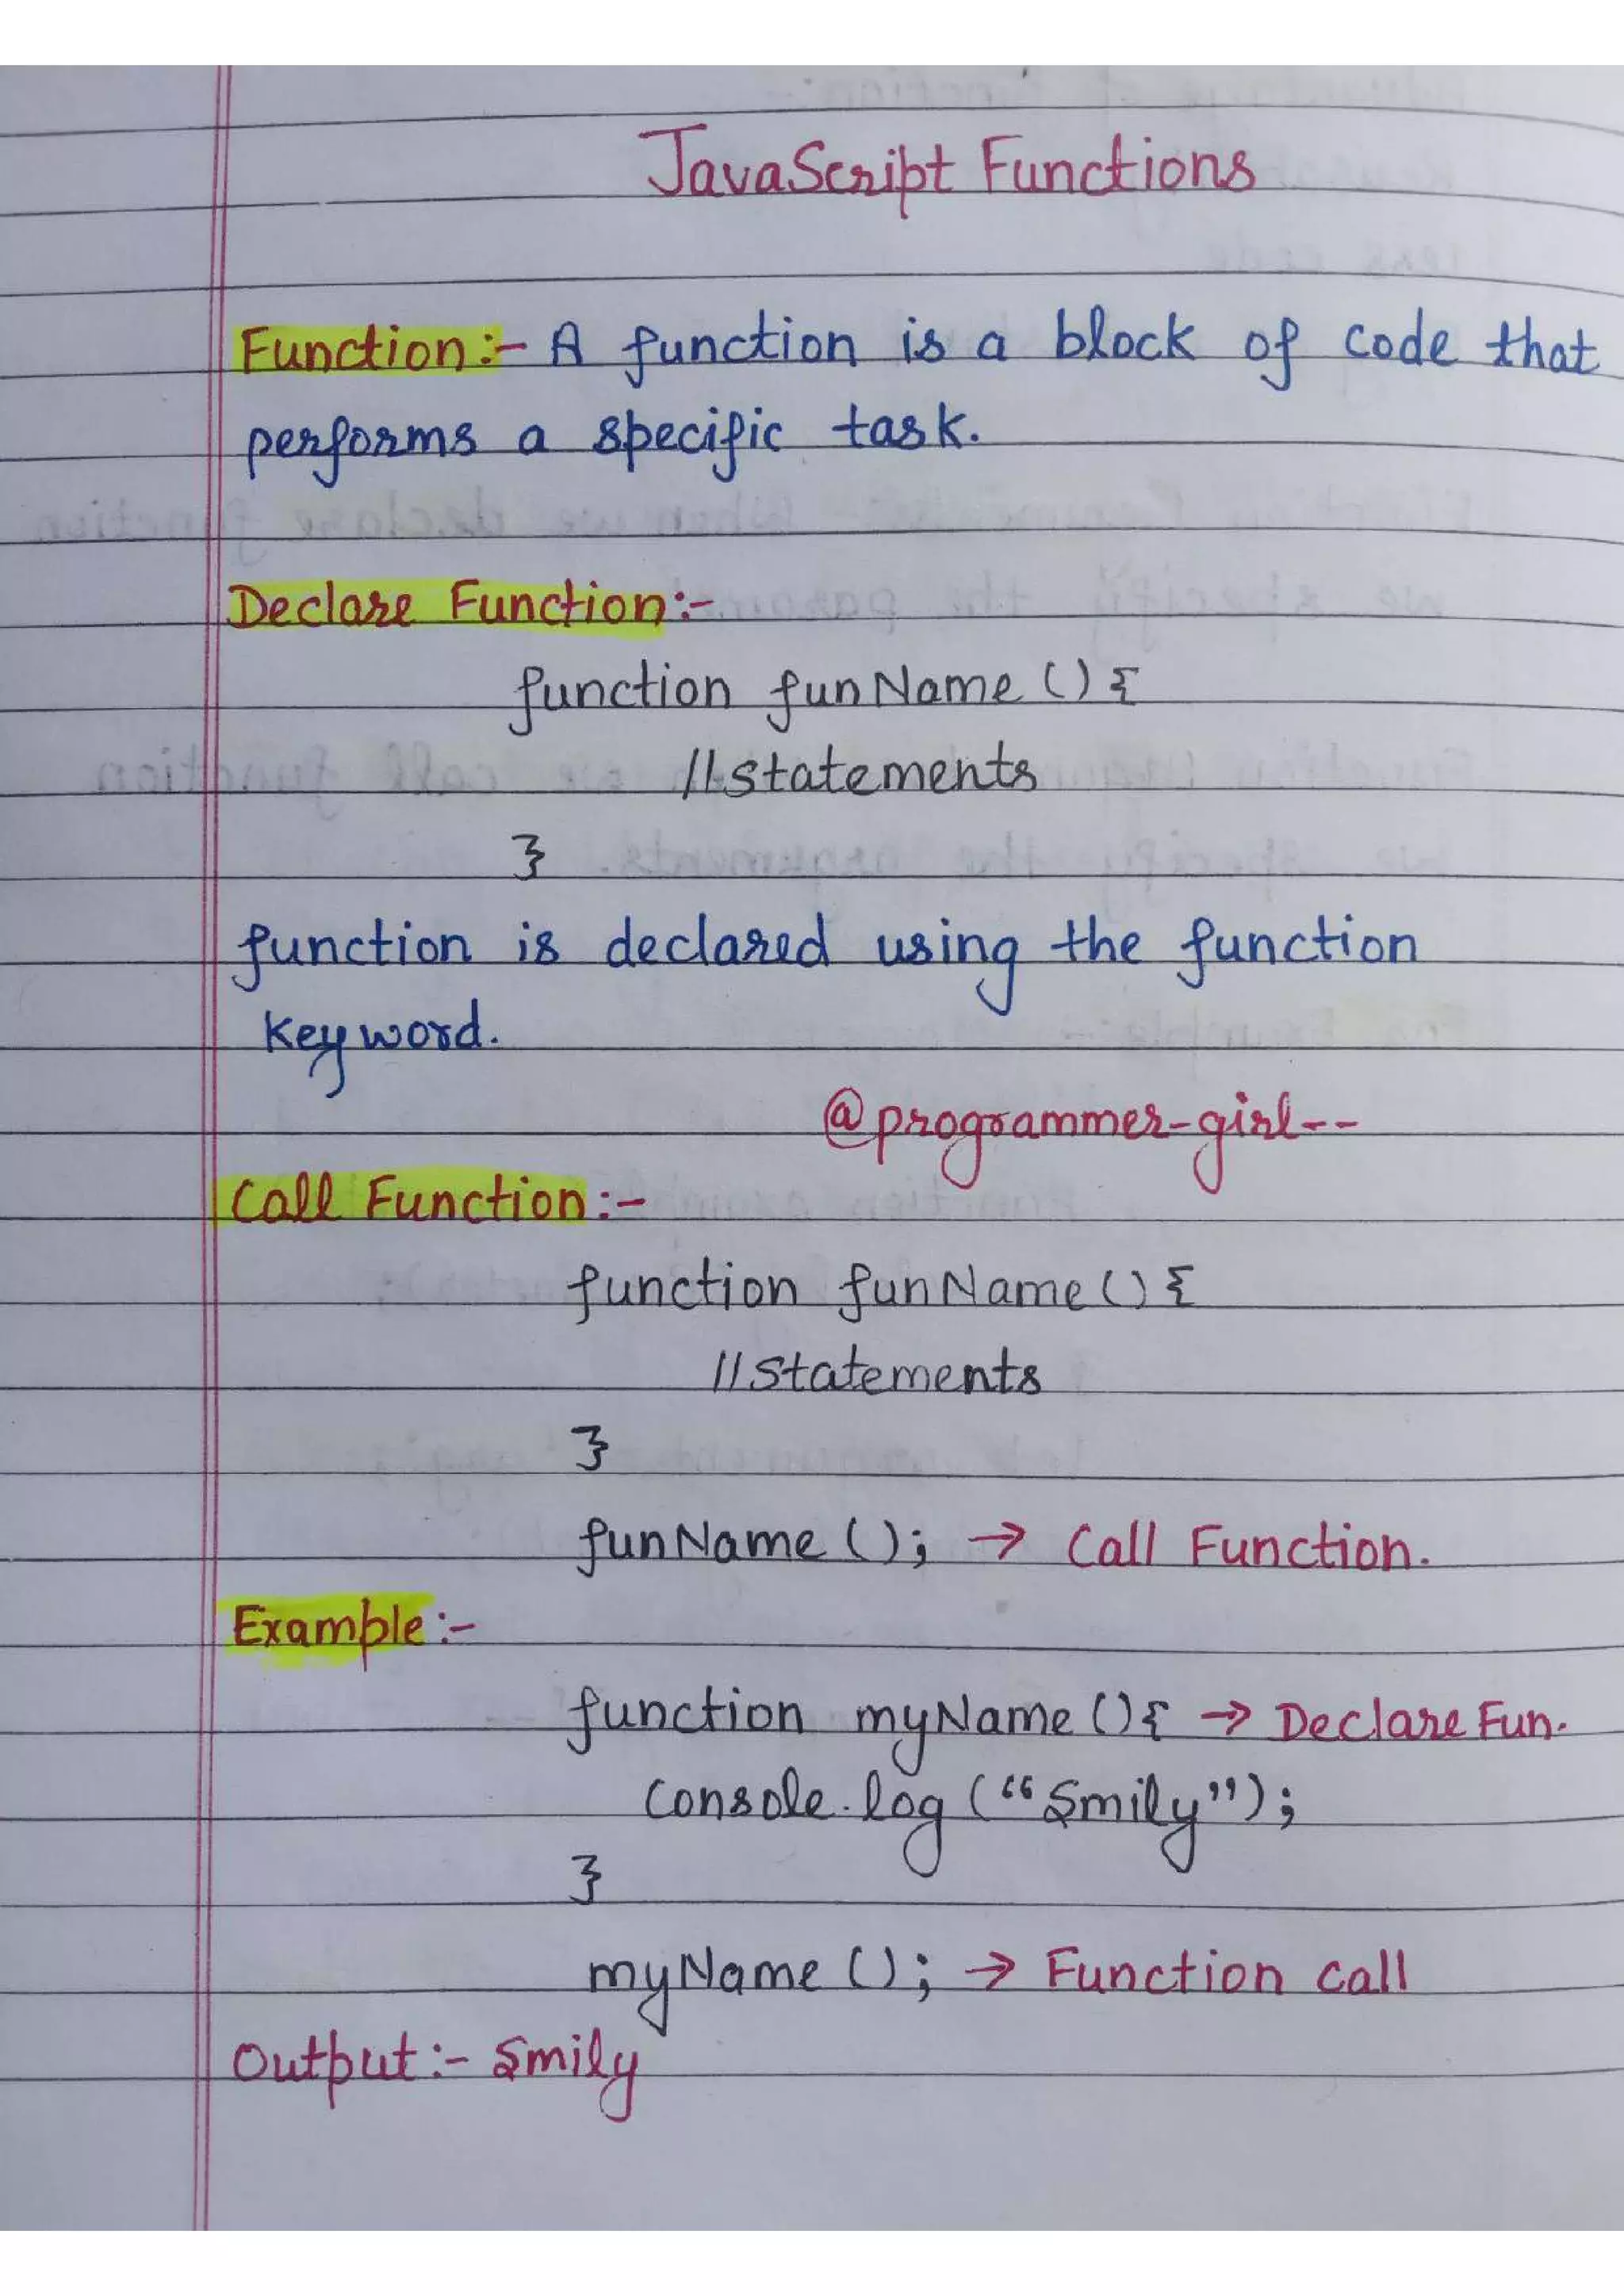 JavaScript Functions
Function:- A function is a block of code that
performs a specific task.
Declare Function:-
function funName () {
//statements
}
function is declared using the function
keyword.
@programmer-girl--
Call Function:-
function funName () {
//statements
}
funName (); → Call Function.
Example:-
function myName () { → Declare Fun.
Console.log (“Smily”);
}
myName (); → Function call
Output:- Smily